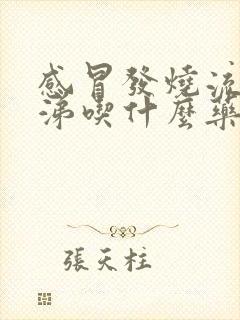 感冒發燒流
涕喫什麼藥
張天柱